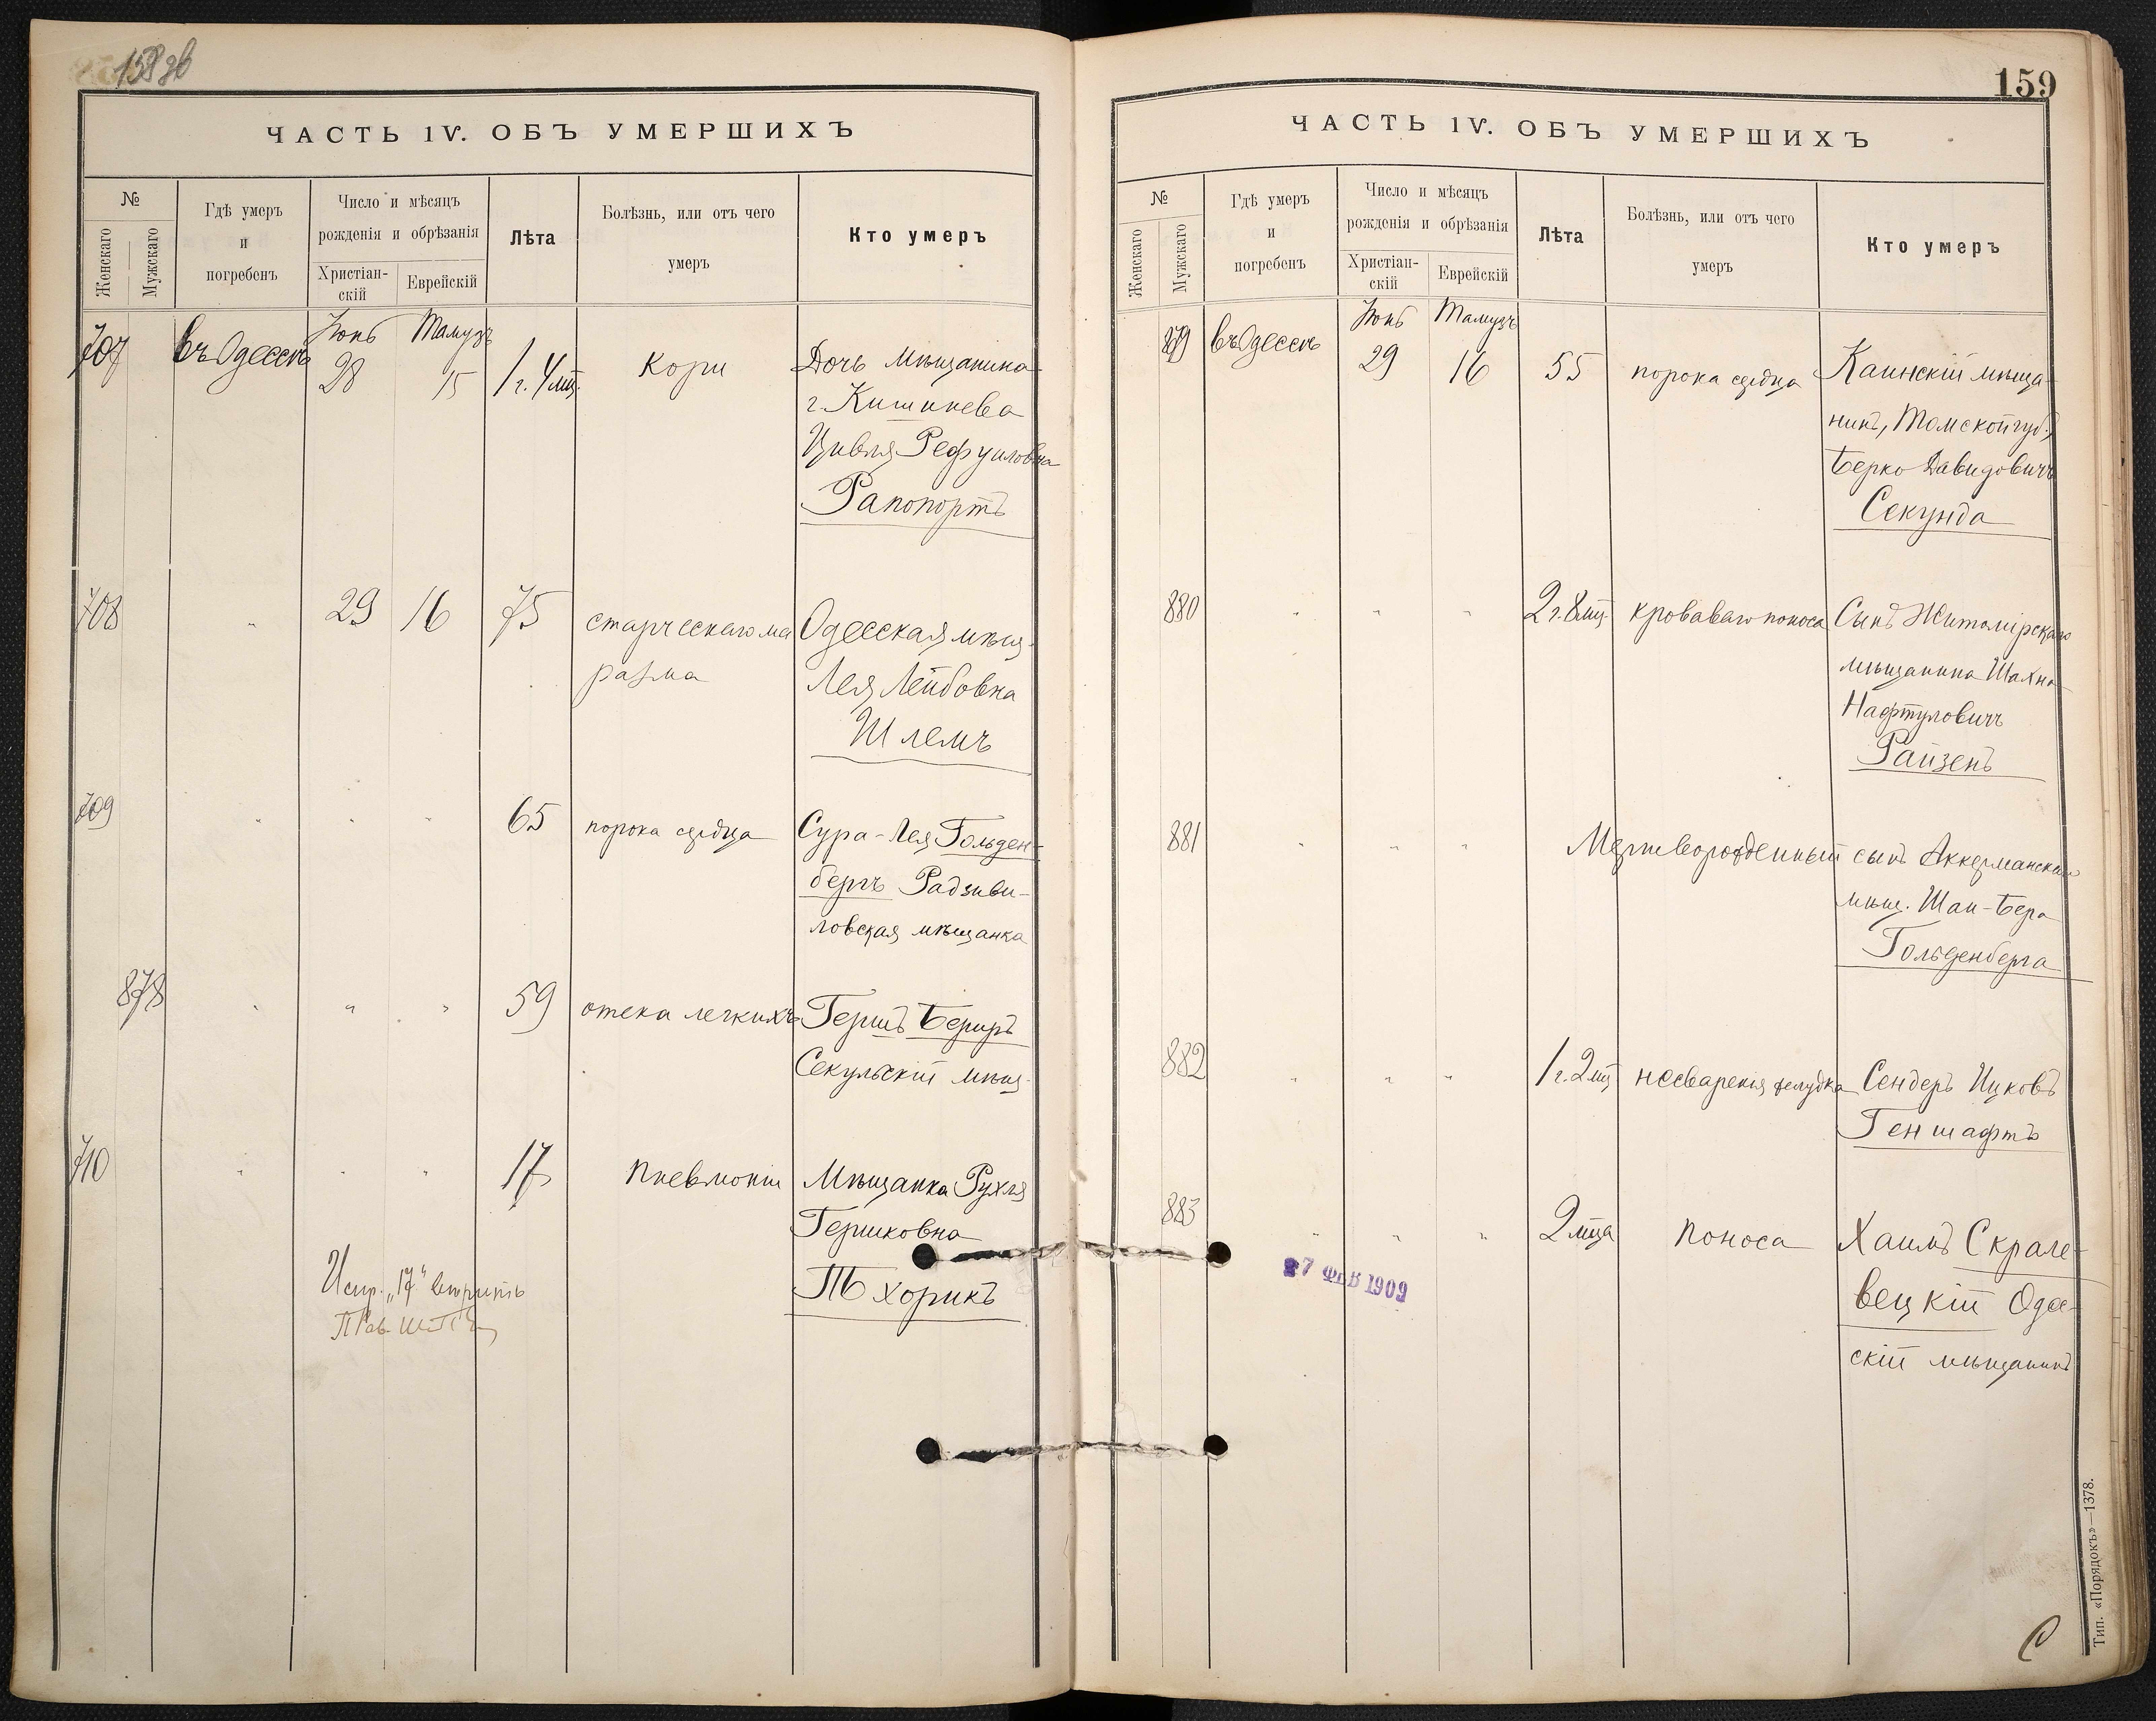 158 об
ЧАСТЬ IV. ОБЪ УМЕРШИХЪ
№
Женскаго
Мужскаго
Гдѣ умеръ
и
погребенъ
Число и мѣсяцъ
рожденія и обрѣзанія
Христіан-
скій
Еврейскій
Лѣта
Болѣзнь, или отъ чего
умеръ
Кто умеръ
Іюнь Тамузъ
707 въ Одессѣ 28 15 1 г. 4 мц. Кори Дочь мѣщанина
г. Кишинева
Цивля Рефуиловна
Рапопортъ
708 " 29 16 75 старческаго ма Одесская мѣщ.
разма Лея Лейбовна
Шлемъ
709 " " " 65 порока сердца Сура-Лея Гольден-
бергъ Радзиви-
ловская мѣщанка
878 " " " 59 отека легкихъ Гершъ Бериръ
Секульскій мѣщ.
710 " " " 17 Пневмоніи Мѣщанка Рухля
Гершковна
Тхорикъ
Испр. „17"
159
ЧАСТЬ IV. ОБЪ УМЕРШИХЪ
№
Женскаго
Мужскаго
Гдѣ умеръ
и
погребенъ
Число и мѣсяцъ
рожденія и обрѣзанія
Христіан-
скій
Еврейскій
Лѣта
Болѣзнь, или отъ чего
умеръ
Кто умеръ
Іюнь Тамузъ
879 въ Одессѣ 29 16 55 порока сердца Каинскій мѣща-
нинъ, Томской губ.,
Берко Давидовичъ
Секунда
880 " " " 2 г. 8 мц. кроваваго поноса Сынъ Житомірскаго
мѣщанина Шахна
Нафтуловичъ
Райзенъ
881 " " " Мертворожденный сынъ Аккерманскаго
мѣщ. Шаи-Бера
Гольденберга
882 " " " 1 г. 2 мц несваренія желудка Сендеръ Ицковъ
Геншафтъ
883 " " " 2 мца поноса Хаимъ Скрале-
вецкій Одес-
скій мѣщанинъ
27 ФЕВ 1909
Тип. «Порядокъ»—1378.